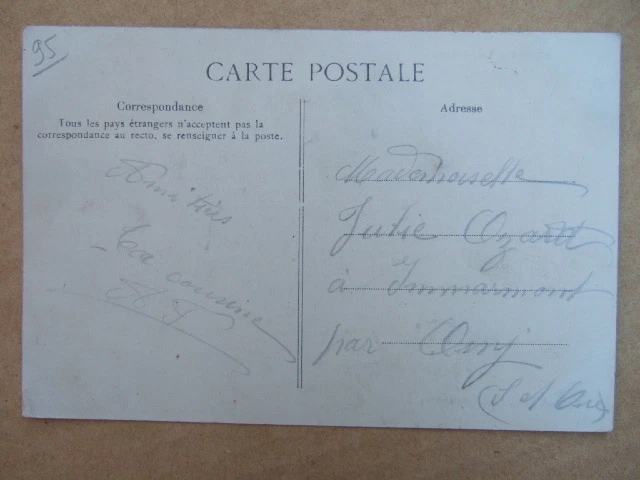 95
CARTE POSTALE
Correspondance
Tous les pays étrangers n'acceptent pas la
correspondance au recto, se renseigner à la poste.
Amitiés
Ta cousine
Adresse
Mademoiselle
Julie
à
par
(S et Oise)